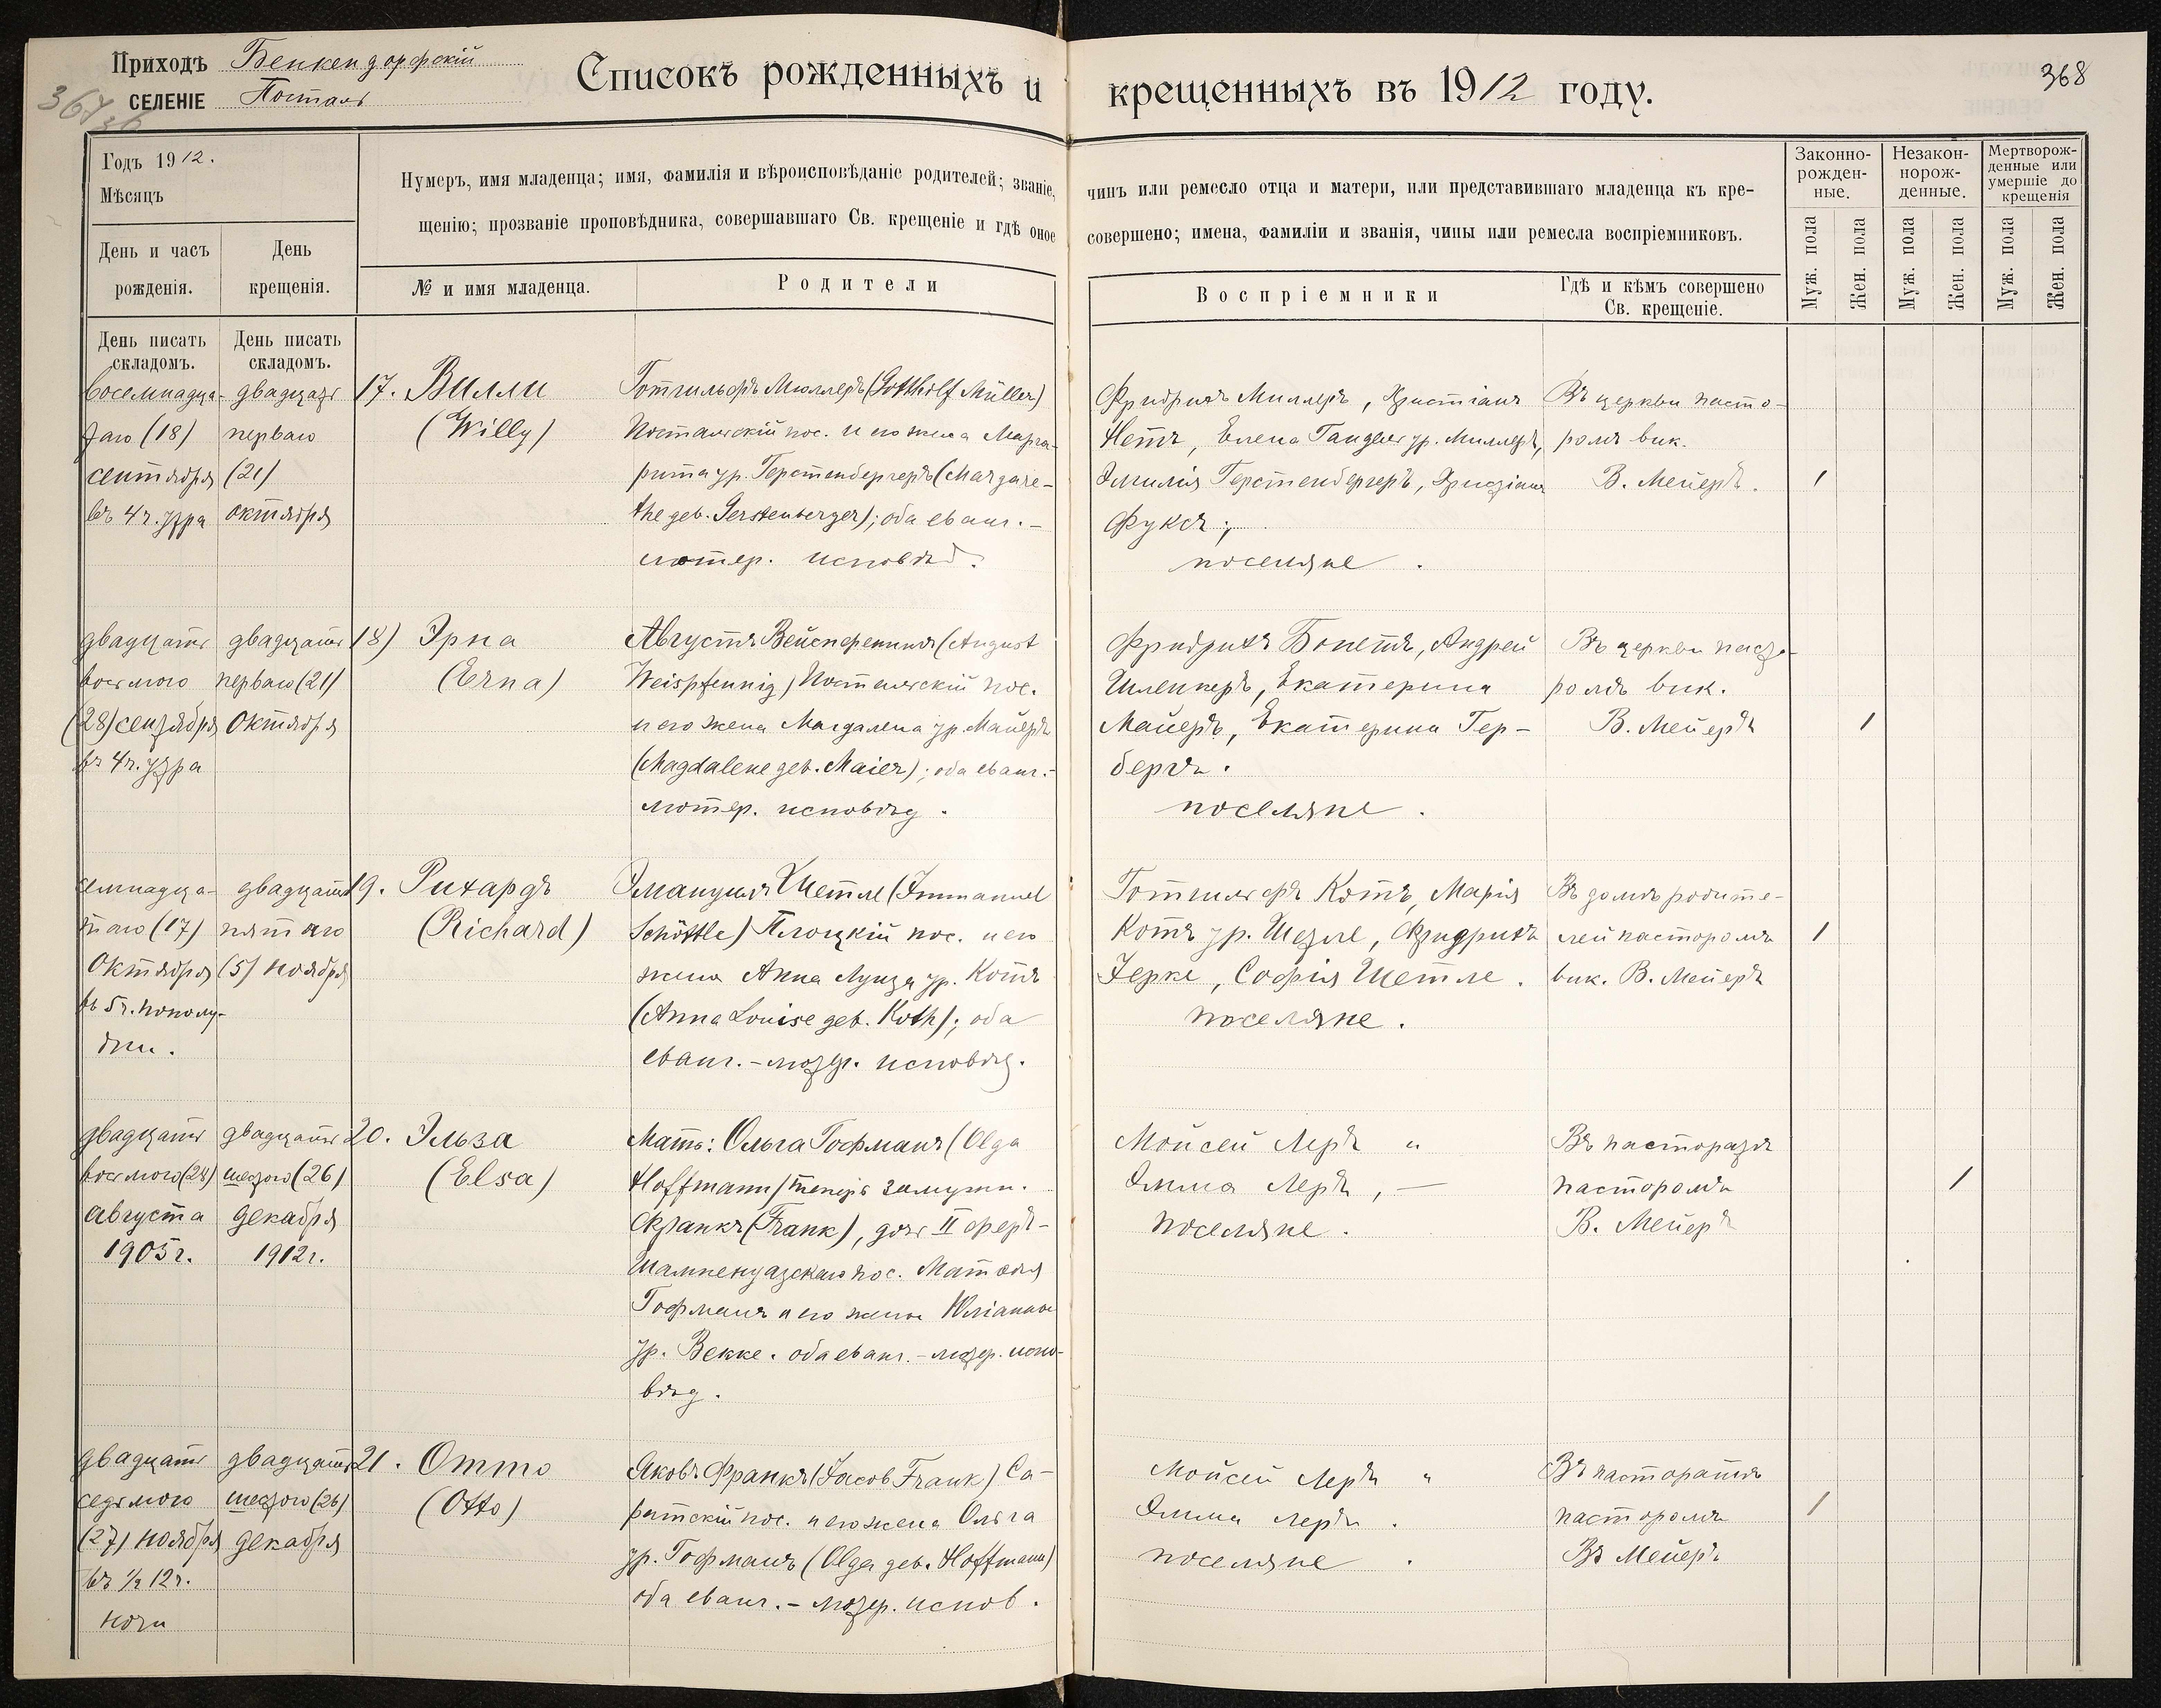 Приходъ Бенкендорфскій
СЕЛЕНІЕ Посталь
Списокъ рожденныхъ и крещенныхъ въ 1912 году.
367
368
Годъ 1912.
Мѣсяцъ
Нумеръ, имя младенца; имя, фамилія и вѣроисповѣданіе родителей; званіе, чинъ или ремесло отца и матери, или представившаго младенца къ кре-
щенію; прозваніе проповѣдника, совершавшаго Св. крещеніе и гдѣ оное совершено; имена, фамиліи и званія, чины или ремесла воспріемниковъ.
День и часъ рожденія.
День крещенія.
№ и имя младенца.
Родители
Воспріемники
Гдѣ и кѣмъ совершено
Св. крещеніе.
Законно-
рожден-
ные.
Незакон-
норож-
денные.
Мертворож-
денные или
умершіе до
крещенія
Муж. пола
Жен. пола
Муж. пола
Жен. пола
Муж. пола
Жен. пола
День писать
складомъ.
День писать
складомъ.
восемнадца-
таго (18)
сентября
въ 4 ч. утра
двадцать
перваго
(21)
октября
17. Вилли
(Willy)
Готгильфъ Мюллеръ (Gotthilf Müller)
Постальскій пос. и его жена Марга-
рита ур. Герстенбергеръ (Margare-
the geb. Gerstenberger); оба еванг.-
лютер. исповѣд.
Фридрихъ Миллеръ, Христіанъ
Нетъ, Елена Ганделъ ур. Миллеръ,
Эмилія Герстенбергеръ, Христіанъ
Фуксъ;
поселяне.
Въ церкви пасто-
ромъ вик.
В. Мейеръ.
1
двадцать
восьмого
(28) сентября
въ 4 ч. утра
двадцать
перваго (21)
Октября
18) Эрна
(Erna)
Августъ Вейспфеннигъ (August
Weispfennig) Постальскій пос.
и его жена Магдалена ур. Майеръ
(Magdalene geb. Maier); оба еванг.-
лютер. исповѣд.
Фридрихъ Бонетъ, Андрей
Шленкеръ, Екатерина
Майеръ, Екатерина Гер-
бергъ.
поселяне.
Въ церкви пасто-
ромъ вик.
В. Мейеръ
1
семнадца-
таго (17)
Октября
въ 5 ч. пополу-
дни.
двадцать
пятаго
(5) ноября
19. Рихардъ
(Richard)
Эмануилъ Шетле (Immanuel
Schöttle) Плоцкій пос. и его
жена Анна Луиза ур. Котъ
(Anna Louise geb. Koth); оба
еванг.-лютер. исповѣд.
Готгильфъ Котъ, Марія
Котъ ур. Шетле, Фридрихъ
Герке, Софія Шетле.
поселяне.
Въ домѣ родите-
лей пасторомъ
вик. В. Мейеръ
1
двадцать
восьмого (28)
августа
1905 г.
двадцать
шестого (26)
декабря
1912 г.
20. Эльза
(Elsa)
Мать: Ольга Гофманъ (Olga
Hoffmann) теперь замужн.
Франкъ (Frank), дочь II Фер-
Шампенуазскаго пос. Матвѣя
Гофманъ и его жены Юліанны
ур. Векке. оба еванг.-лютер. испо-
вѣд.
Мойсей Леръ "
Эмма Леръ, —
поселяне.
Въ пасторатѣ
пасторомъ
В. Мейеръ
1
двадцать
седьмого
(27) ноября
въ ½ 12 ч.
ночи
двадцать
шестого (26)
декабря
21. Отто
(Otto)
Яковъ Франкъ (Jacob Frank) Са-
ратскій пос. и его жена Ольга
ур. Гофманъ (Olga geb. Hoffmann)
оба еванг.-лютер. испов.
Мойсей Леръ "
Эмма Леръ.
поселяне.
Въ пасторатѣ
пасторомъ
В. Мейеръ
1